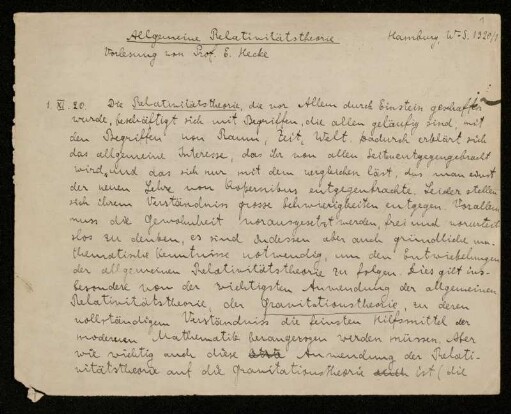 Allgemeine Relativitätstheorie Hamburg, W.-S. 1920/1
Vorlesung von Prof. E. Hecke
1. XI. 20. Die Relativitätstheorie, die vor Allem durch Einstein geschaffen
wurde, beschäftigt sich mit Begriffen, die allen geläufig sind, mit
den Begriffen von Raum, Zeit, Welt. Dadurch erklärt sich
das allgemeine Interesse, das ihr von allen Seiten entgegengebracht
wird, und das sich nur mit dem vergleichen läst, das man einst
der neuen Lehre von Kopernikus entgegenbrachte. Leider stellen
sich ihrem Verständniss grosse Schwierigkeiten entgegen. Vor allem
muss die Gewohnheit vorausgesetzt werden, frei und vorurteils-
los zu denken, es sind indessen aber auch gründliche ma-
thematische Kenntnisse notwendig, um den Entwickelungen
der allgemeinen Relativitätstheorie zu folgen. Dies gilt ins-
besondere von der wichtigsten Anwendung der allgemeinen
Relativitätstheorie, der Gravitationstheorie, zu deren
vollständigem Verständniss die feinsten Hilfsmittel der
modernen Mathematik herangezogen werden müssen. Aber
wie wichtig auch diese Anwendung der Relati-
vitätstheorie auf die Gravitationstheorie auch ist (die